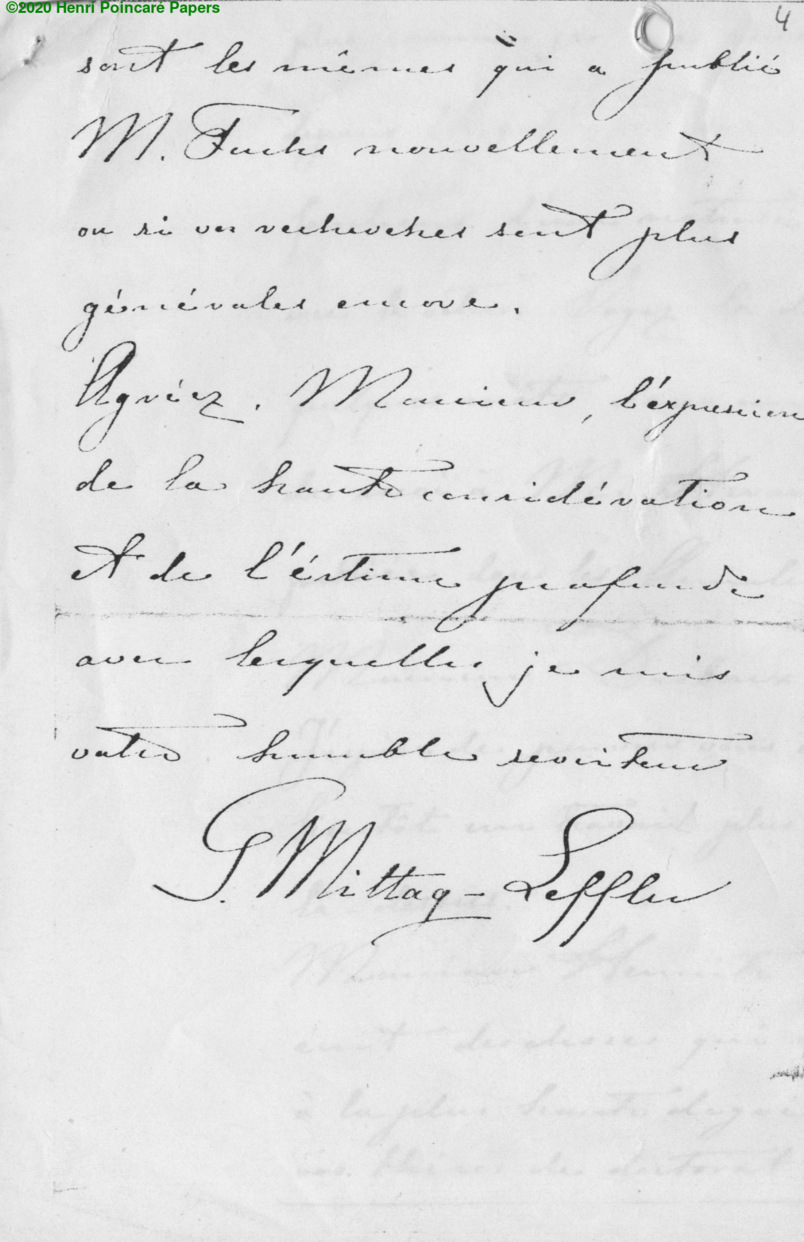 ©2020 Henri Poincaré Papers
4
sont les mêmes qui a publié
M. Fuchs nouvellement
ou si vos recherches sont plus
générales encore.
Agréez, Monsieur, l'expression
de la haute considération
et de l'éstime profonde
avec lesquelles je suis
votre humble serviteur
G. Mittag-Leffler